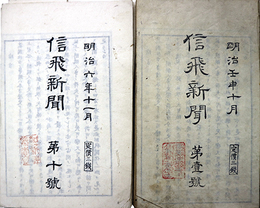 明治壬申十月
信飛新聞
第壹號
定價三錢
明治六年十一月
信飛新聞
第十號
定價三錢